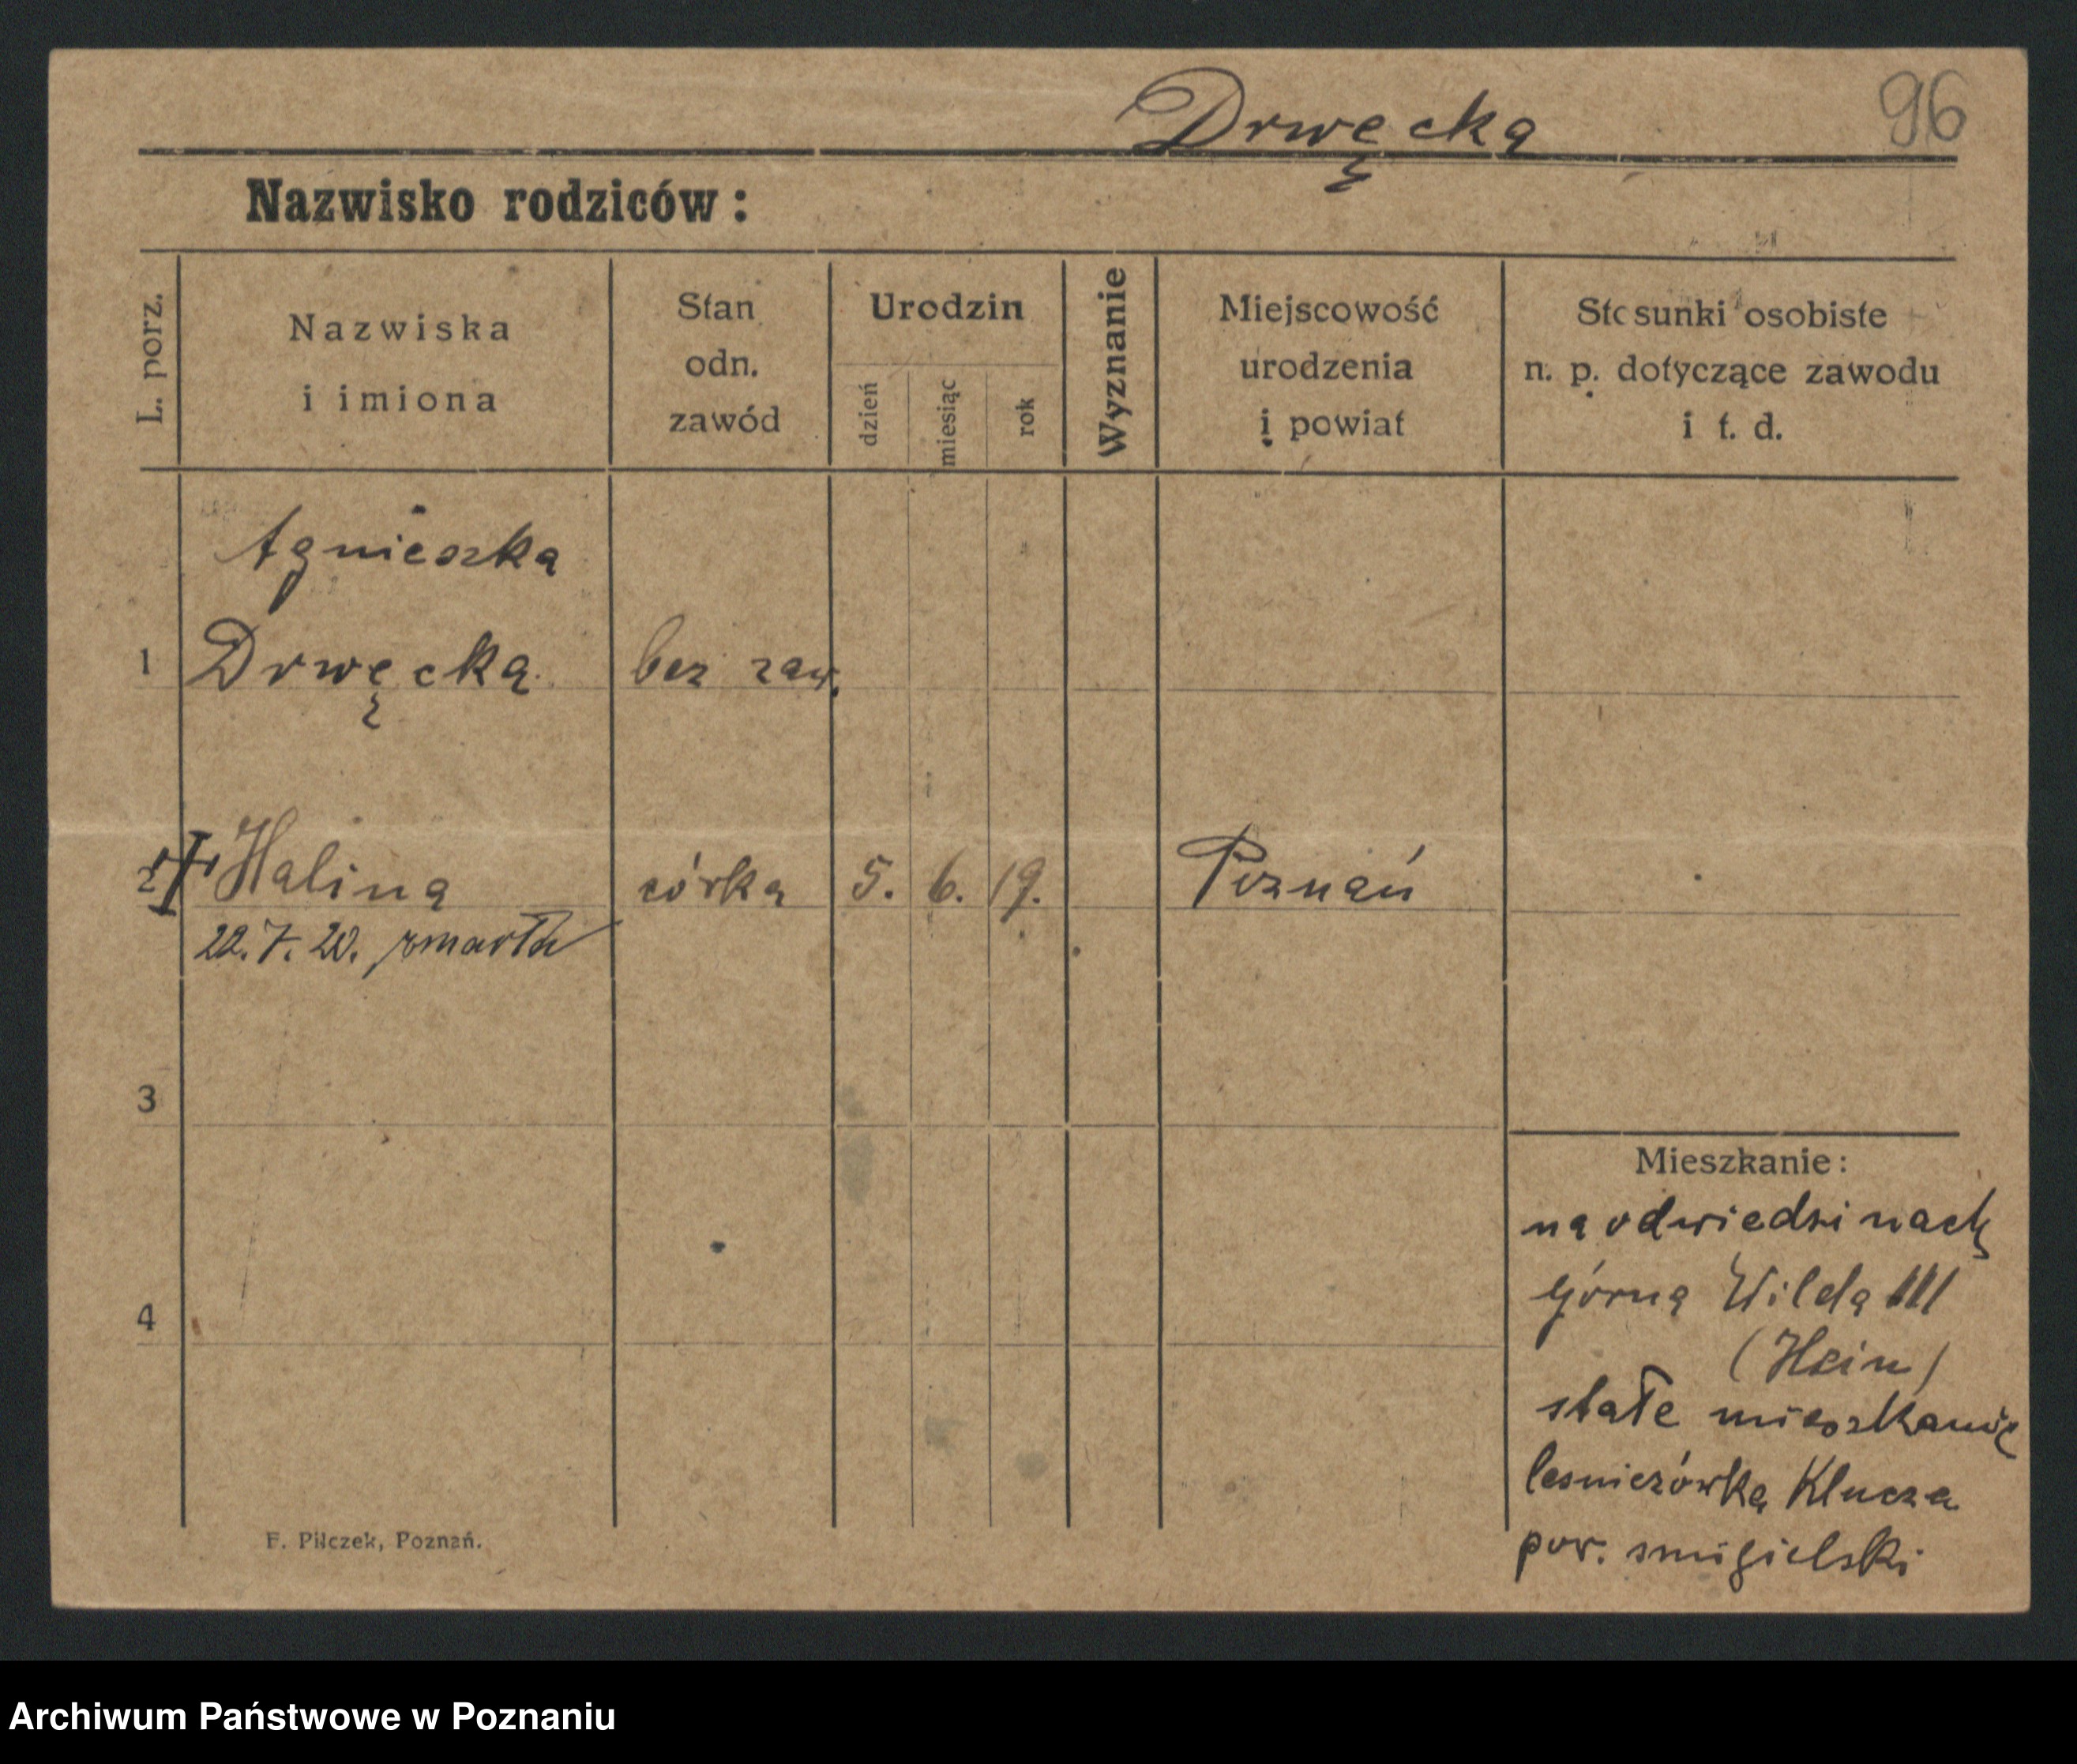 Drwęcka
96
Nazwisko rodziców:
L. porz.
Nazwiska
i imiona
Stan
odn.
zawód
Urodzin
dzień
miesiąc
rok
Wyznanie
Miejscowość
urodzenia
i powiat
Stosunki osobiste
n. p. dotyczące zawodu
i t. d.
Agnieszka
1 Drwęcka bez zaw.
2 Halina córka 5. 6. 19. Poznań
22.7.20. zmarła
3
Mieszkanie:
na odwiedzinach
4 Górna Wilda 111
(Hein)
stałe mieszkanie
lesniczówka Klucza
pow. smigielski
F. Pilczek, Poznań.
Archiwum Państwowe w Poznaniu